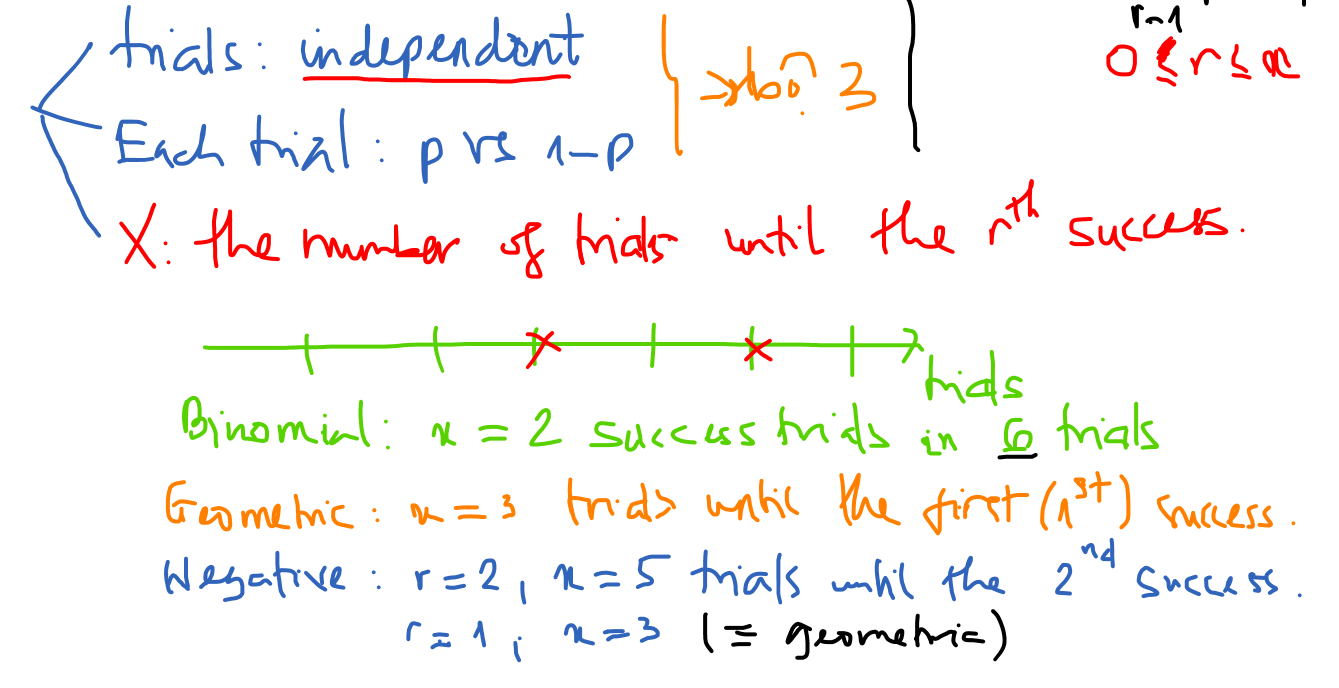 trials: independent
Each trial: p vs 1-p
3
r-1
0 ≤ r ≤ x
X: the number of trials until the rth success.
trials
Binomial: x = 2 success trials in 6 trials
Geometric: x = 3 trials until the first (1st) success.
Negative: r = 2, x = 5 trials until the 2nd success.
r = 1; x = 3 (≡ geometric)